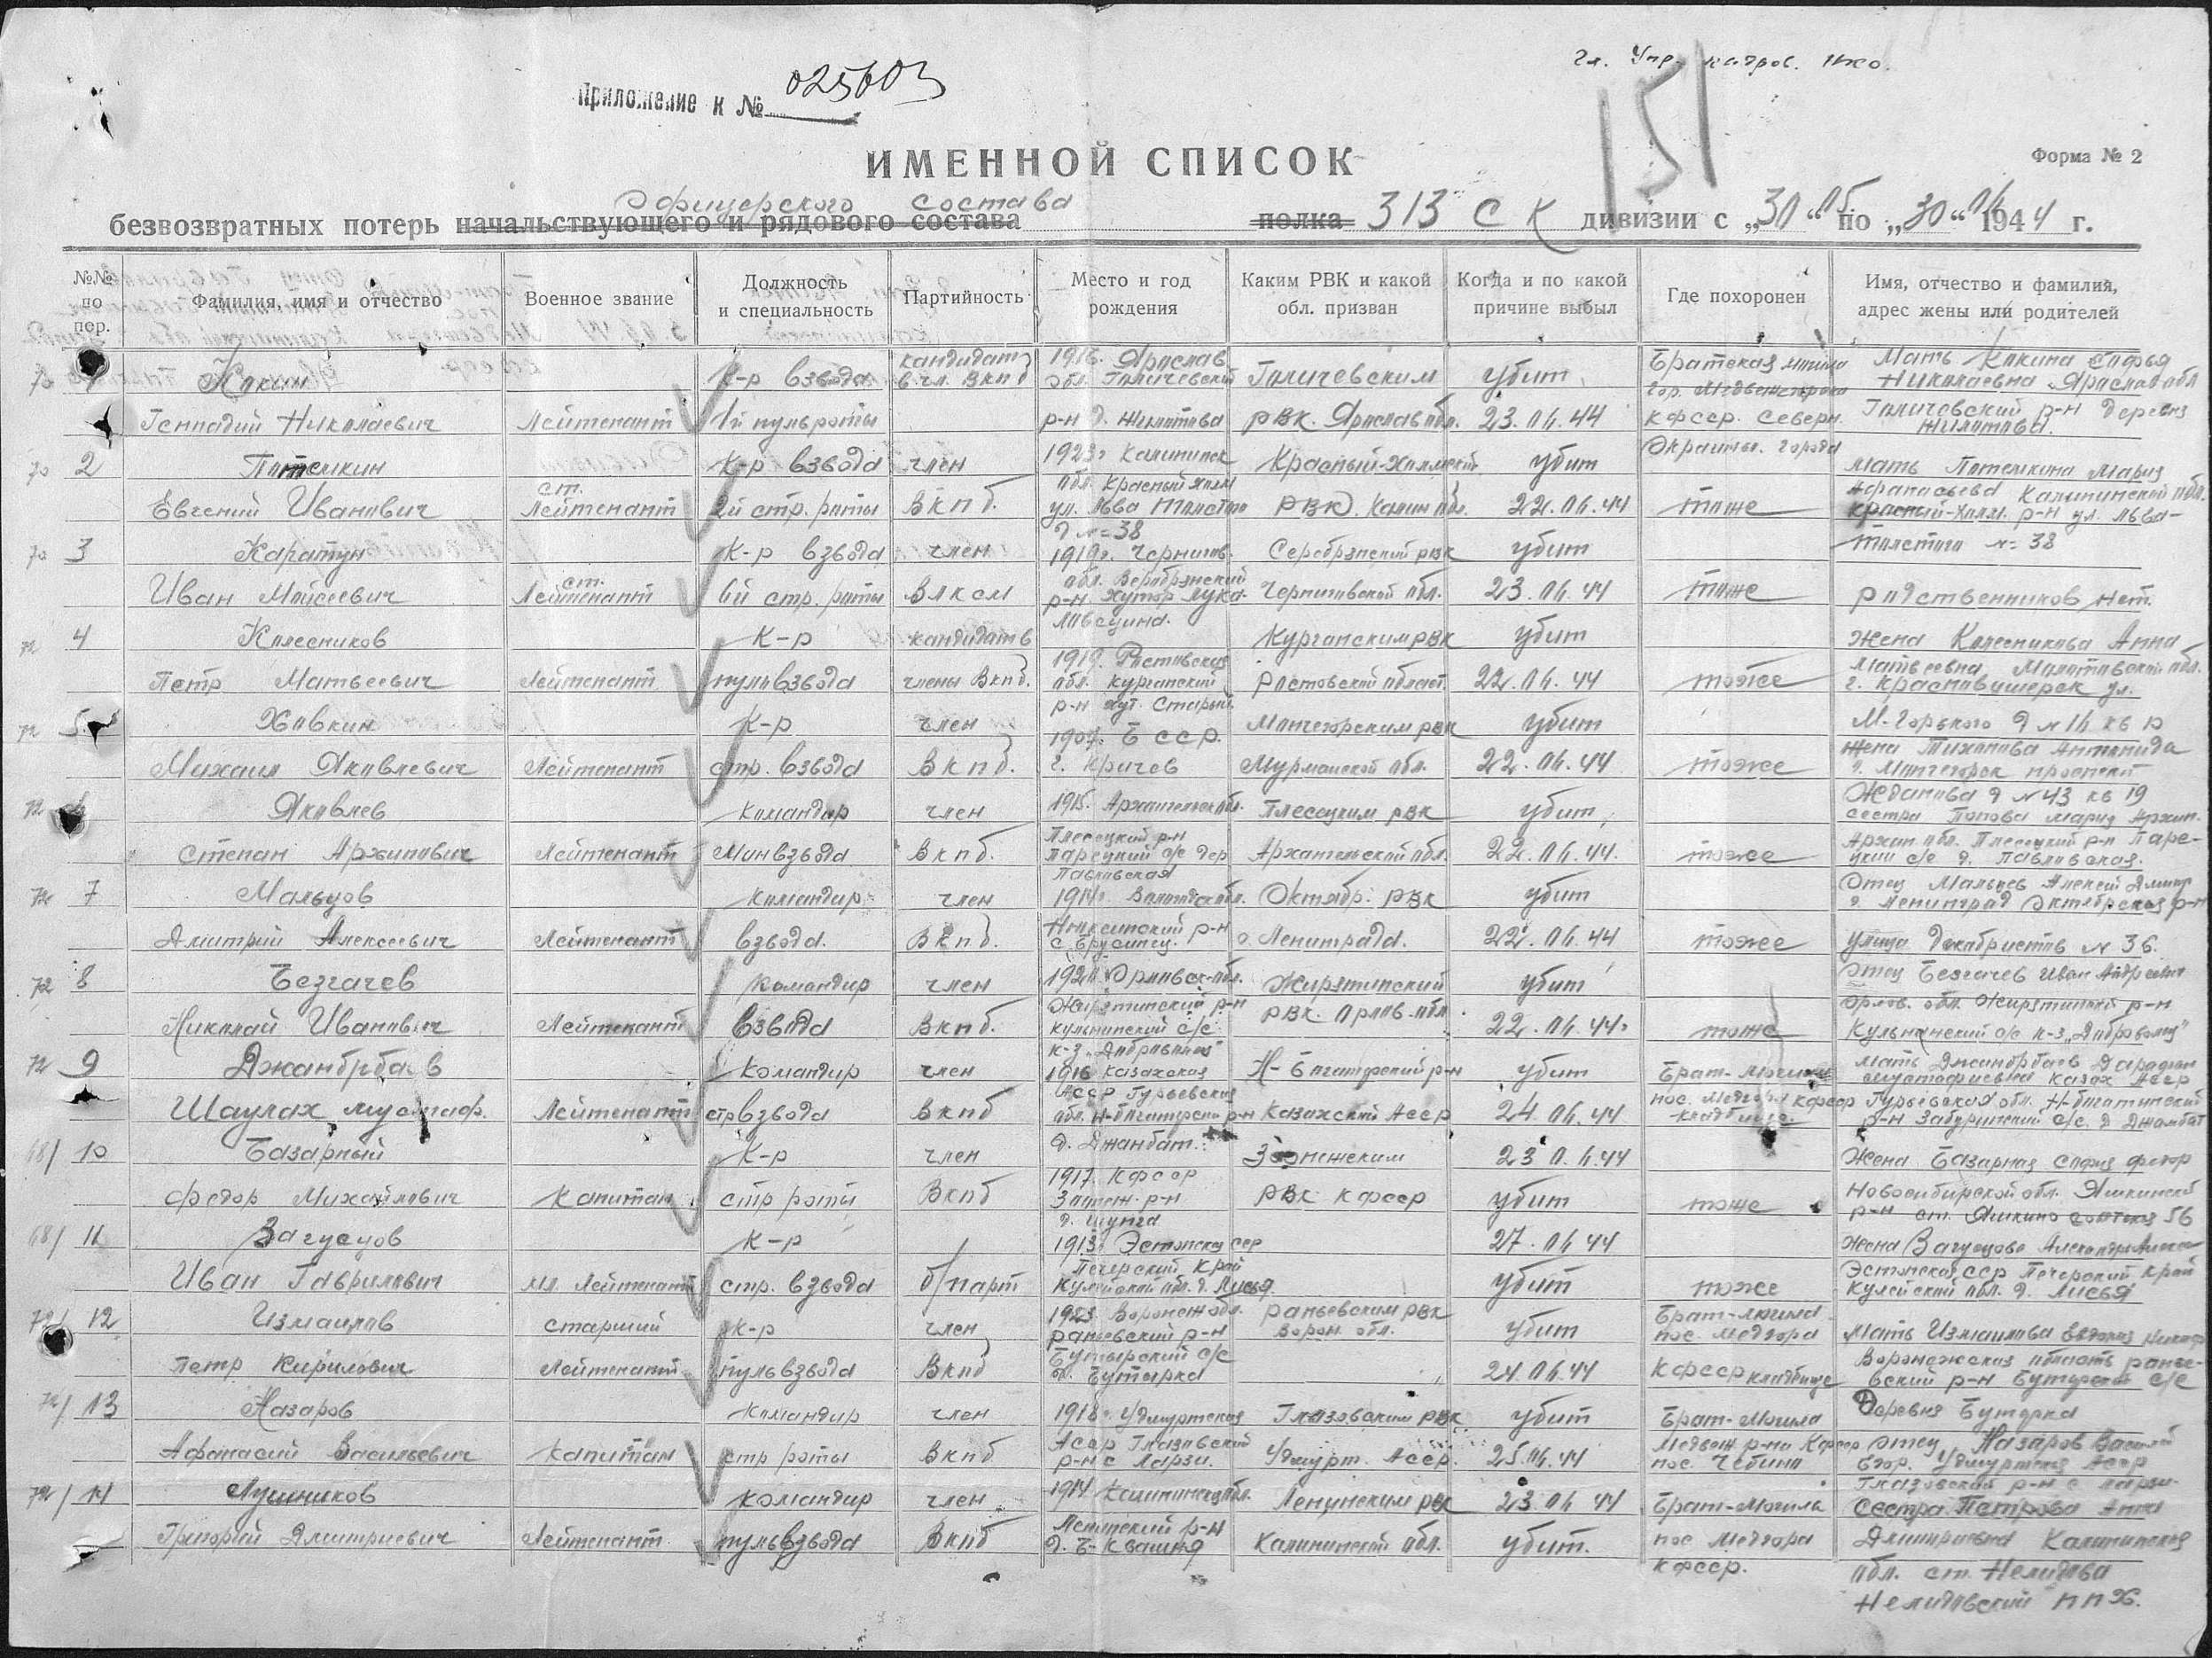 Гл. Упр. кадров. НКО.
Приложение к № 025603
151
ИМЕННОЙ СПИСОК
Форма № 2
Офицерского состава
безвозвратных потерь начальствующего и рядового состава полка 313 С К дивизии с „30“ 05 по „30“ 06 1944 г.
№№ по пер.
Фамилия, имя и отчество
Военное звание
Должность и специальность
Партийность
Место и год рождения
Каким РВК и какой обл. призван
Когда и по какой причине выбыл
Где похоронен
Имя, отчество и фамилия, адрес жены или родителей
1 Какин К-р взвода кандидат в чл. ВКПб 1916. Яраслав обл. Галичевский Галичевским убит Братская могила гор. Медвежегорска Мать Какина Софья Николаевна Яраслав обл
Геннадий Николаевич Лейтенант 1й пульроты р-н д. Жилятива РВК. Яраслав обл. 23.06.44 КФССР. Северн. Окраины. города Галичевский р-н деревня Жилятива.
2 Патемкин К-р взвода член 1923г Калининск обл. Красный Холм Красный-Холмский убит Мать Патемкина Мария
Евгений Иванович ст. Лейтенант 2й стр. роты ВКПб. ул. Льва Толстого д №38 РВК. Калин обл. 22.06.44 тоже Афанасьева Калининской обл. Красный-Холм. р-н ул. Льва-Толстого №38
3 Каратун К-р взвода член 1919г. Чернигов. Серебрянский РВК убит
Иван Моисеевич ст. Лейтенант 6й стр. роты ВЛКСМ обл. р-н. Хутор Черниговской обл. 23.06.44 тоже Родственников нет.
4 Колесников К-р кандидат в 1919. Ростовская Курганским РВК убит Жена Колесникова Анна
Петр Матвеевич Лейтенант пульвзвода члены ВКПб. обл. Курганский р-н хут. Старый Ростовской област. 22.06.44 тоже Матвеевна Молотовской обл. г. Красновишерск ул. М. Горького д №16 кв 10
5 Хавкин К-р член 1907. БССР. Мончегорским РВК убит Жена Тиханова Антонида
Михаил Яковлевич Лейтенант стр. взвода ВКПб. г. Кричев Мурманской обл. 22.06.44 тоже г. Мончегорск проспект Жданова д №43 кв 19
6 Яковлев командир член 1915. Архангельск обл. Плесецким РВК убит сестра Попова Мария Архип.
Степан Архипович Лейтенант Минвзвода ВКПб. Плесецкий р-н Парецкий с/с дер Павловская Архангельской обл. 22.06.44. тоже Архан обл. Плесецкий р-н Паре-цкий с/с д. Павловская.
7 Мальцов командир член 1914г. Вологодск обл. Октябр. РВК убит Отец Мальцев Алексей Дмитр
Дмитрий Алексеевич Лейтенант взвода. ВКПб. р-н с. г. Ленинграда. 22.06.44 тоже г. Ленинград Октябрьская р-н улица Декабристов №36.
8 Безгачев командир член Орловск. обл. Жирятинский убит Отец Безгачев Иван Андреевич
Николай Иванович Лейтенант взвода ВКПб. Жирятинский р-н Кульнинский с/с к-з „Доброволец“ РВК. Орлов. обл. 22.06.44г тоже Орлов. обл. Жирятинский р-н Кульнинский с/с к-з „Доброволец“
9 Джанбрбаев командир член 1916 Казахская Н-Богатурский р-н убит Брат-могила Мать Джанбрбаев
Шаулах мустаф. Лейтенант стрвзвода ВКПб АССР Гурьевская обл. р-н д. Джанбат. Казахской АССР 24.06.44 пос. Медгора КФССР кладбище. Казах АССР Гурьевская обл. р-н с/с. д Джамбат
10 Базарный К-р член 1917. КФССР Заонежским 23.06.44 Жена Базарная София Федор
Федор Михайлович Капитан стр роты ВКПб Заонеж. р-н д. Шунга РВК КФССР убит тоже Новосибирской обл. Яшкинский р-н ст. Яшкино 56
11 Загусцов К-р 1913г Эстонская ССР 27.06.44 Жена Загусцова
Иван Гаврилович мл. Лейтенант стр. взвода б/парт Печерский край Кулейской обл. д. Лисья убит тоже Эстонская ССР Печерский край Кулейской обл. д. Лисья
12 Измаилов старший К-р член 1923. Воронеж обл. раньевским РВК Ворон. обл. убит Брат-могила пос. Медгора Мать Измаилова Евдокия
Петр Кирилович Лейтенант пульвзвода ВКПб раньевский р-н Бутырский с/с д. Бутырка 24.06.44 КФССР кладбище Воронежская область ранье-вский р-н Бутырский с/с Деревня Бутырка
13 Назаров командир член 1918г. Удмуртская Глазовским РВК убит Брат-Могила
Афанасий Васильевич Капитан стр роты ВКПб АССР Глазовский р-н с Парзи. Удмурт. АССР. 25.06.44 Медвеж р-на КФССР пос. Чебино Отец Назаров Василий Удмуртская АССР Глазовский р-н с Парзи.
14 Лушников командир член 1914 Калининск обл. Ленинским РВК 23.06.44 Брат-Могила Сестра Петрова Анна
Григорий Дмитриевич Лейтенант пульвзвода ВКПб Ленинский р-н д. Б-Квашня Калининской обл. убит. пос Медгора КФССР. Дмитриевна Калининская обл. ст. Нелидова Нелидовский